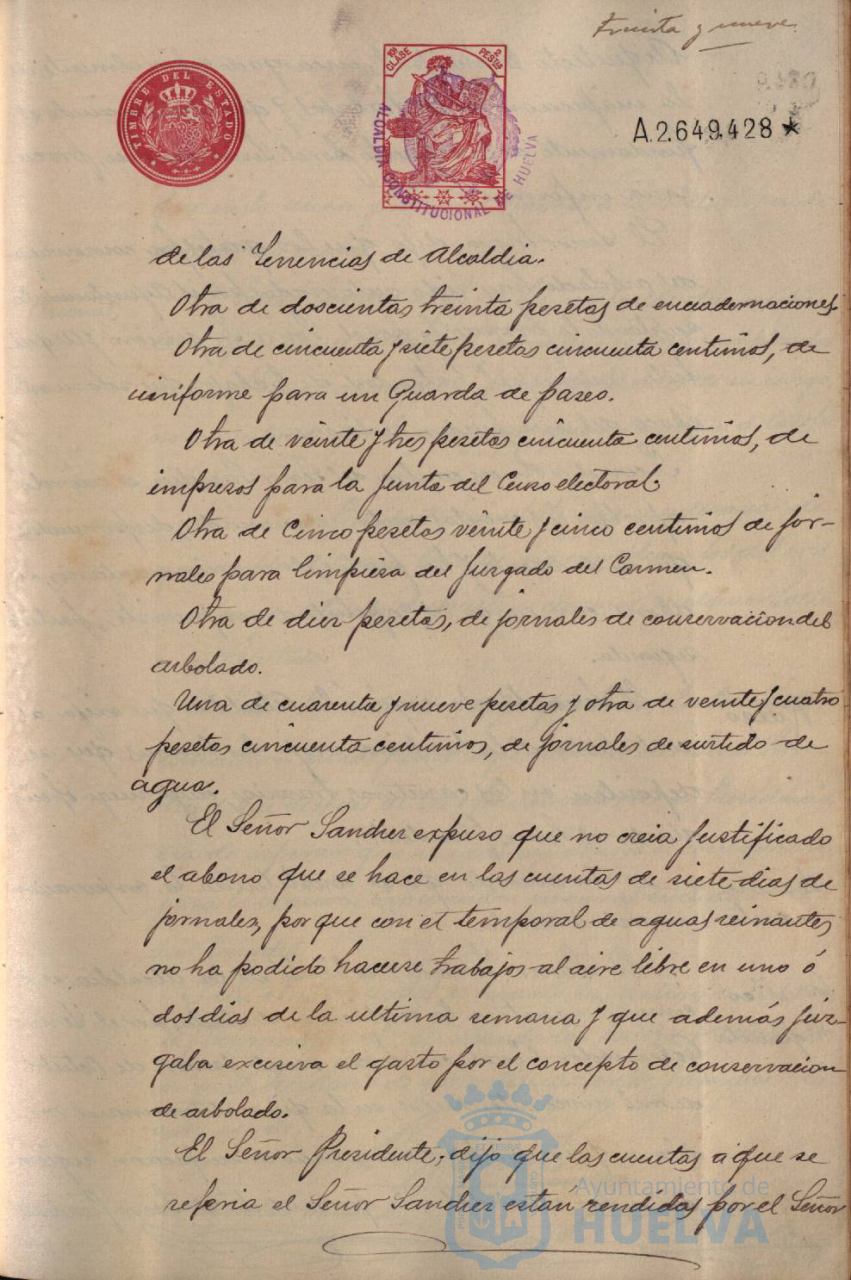 treinta y nueve
TIMBRE DEL ESTADO
10ª CLASE
2 PESTAS
ALCALDIA CONSTITUCIONAL DE HUELVA
A.2.649.428 ★
de las Tenencias de Alcaldia.
Otra de doscientas treinta pesetas de encuadernaciones.
Otra de cincuenta y siete pesetas cincuenta centimos, de
uniforme para un Guarda de paseo.
Otra de veinte y tres pesetas cincuenta centimos, de
impresos para la Junta del Censo electoral.
Otra de Cinco pesetas veinte y cinco centimos de jor-
nales para limpiesa del Juzgado del Carmen.
Otra de diez pesetas, de jornales de conservacion del
arbolado.
Una de cuarenta y nueve pesetas y otra de veinte y cuatro
pesetas cincuenta centimos, de jornales de surtido de
agua.
El Señor Sanchez expuso que no creia justificado
el abono que se hace en las cuentas de siete dias de
jornales, por que con el temporal de aguas reinantes
no ha podido hacerse trabajos al aire libre en uno ó
dos dias de la ultima semana y que además juz-
gaba excesiva el gasto por el concepto de conservacion
de arbolado.
El Señor Presidente, dijo que las cuentas a que se
referia el Señor Sanchez están rendidas por el Señor
Ayuntamiento de
HUELVA